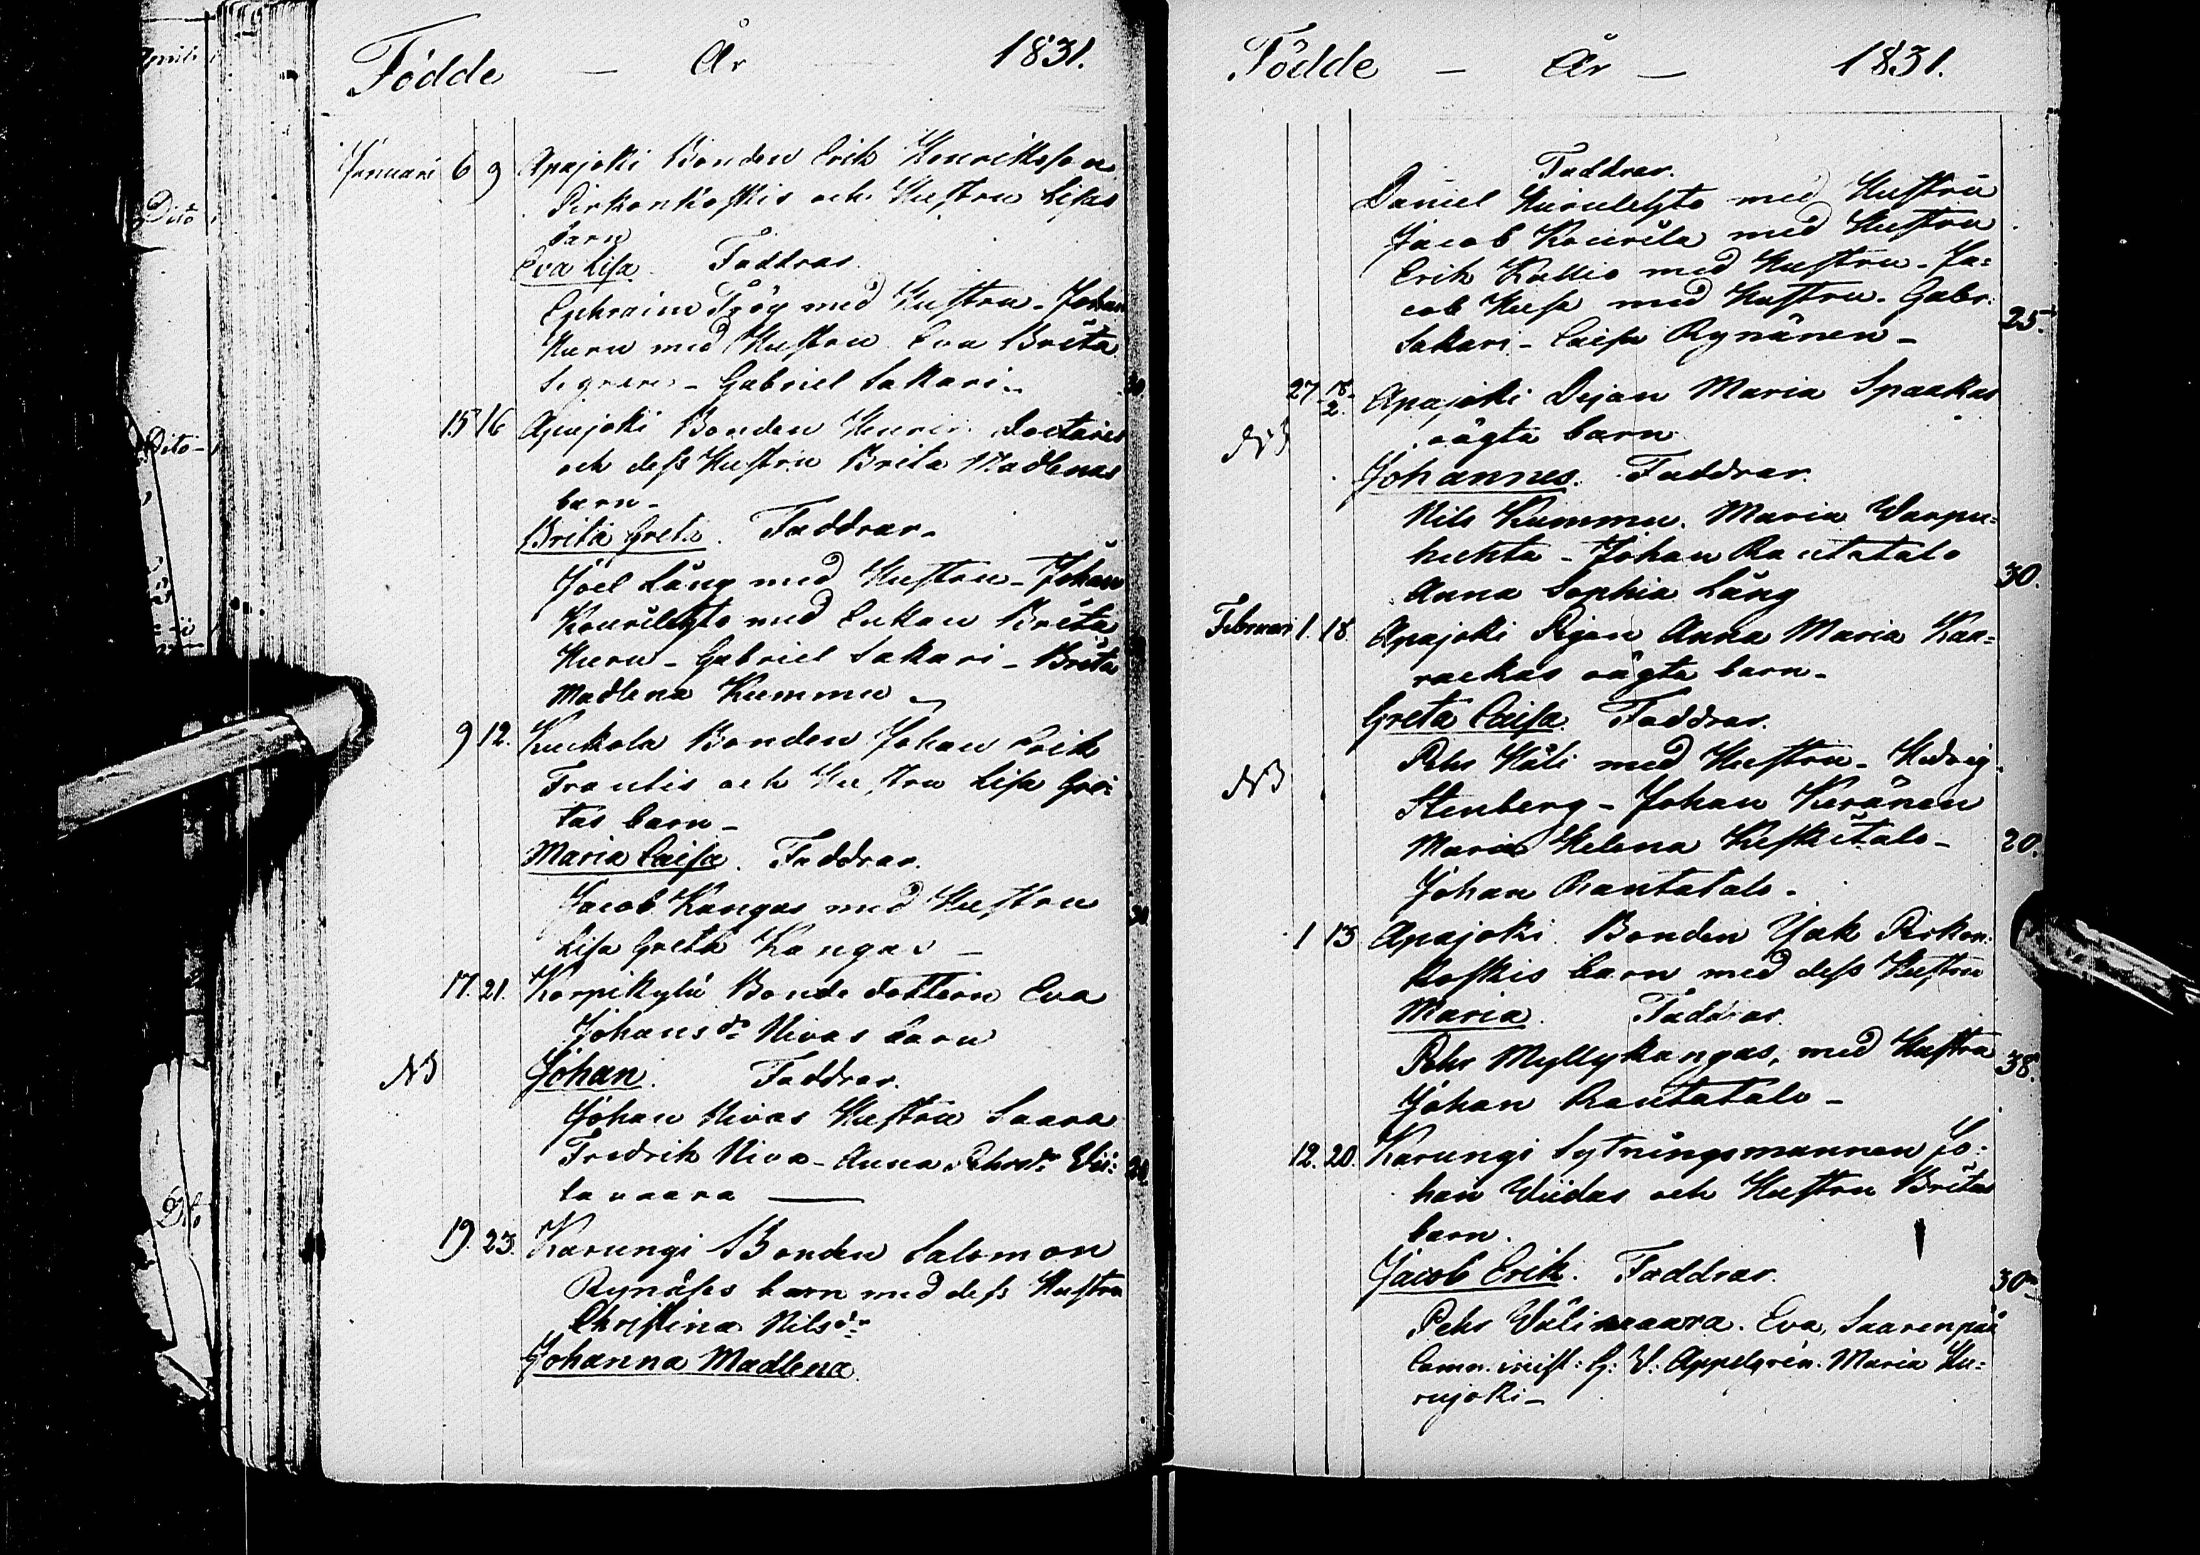 Födde — År 1831.
Januari 6 9 Apajoki Bonden Erik Henriksson
Pirkonkoskis och Hustru Lisas
barn
Eva Lisa. Faddrar
Ephraim Fröy med Hustru - Johan
Kuru med Hustru Eva Brita
- Gabriel Sakari -
15 16 Apajoki Bonden
och dess Hustru Brita Madlenas
barn -
Brita Greta. Faddrar -
Joel Lång med Hustru - Johan
Kourilehto med Enkan Brita
Kuru - Gabriel Sakari - Brita
Madlena Kummu
9 12. Kuckola Bonden Johan Erik
Frantis och Hustru Lisa Gre=
tas barn -
Maria Caisa. Faddrar.
Jacob Kangas med Hustru
Lisa Greta Kangas —
17. 21. Korpikylä Bonde dottern Eva
Johans dr Nivas barn
NB Johan. Faddrar.
Johan Nivas Hustru Saara
Fredrik Niva - Anna Pehrsdr
vaara —
19. 23. Karungi Bonden Salomon
Rynäses barn med dess Hustru
Christina Nilsdr
Johanna Madlena.
Födde — År — 1831.
Faddrar.
Daniel med Hustru
Jacob Kourila med Hustru
Erik Kallio med Hustru - Ja=
cob med Hustru. Gabr:
Sakari - Caisa Rynänen - 25.
27 18/2. Apajoki Pigan Maria Spaakas
NB oägta barn
Johannes. Faddrar.
Nils Kummu. Maria Warpu=
huhta - Johan Rautatalo
Anna Sophia Lång 30.
Februari 1. 18 Apajoki Pigan Anna Maria Kaa=
rackas oägta barn -
Greta Caisa. Faddrar.
NB Pehr Häli med Hustru - Hedvig
Stenberg - Johan Keränen
Maria Helena Keskitalo - 20.
Johan Rautatalo -
1 13 Apajoki Bonden Isak Pirkon=
koskis barn med dess Hustru
Maria. Faddrar.
Pehr Myllykangas, med Hustru 38.
Johan Rautatalo -
12. 20. Karungi Sytningsmannen Jo=
han Viidas och Hustru Britas
barn.
Jacob Erik. Faddrar. 30
Pehr Välimaara. Eva Saarenpää
Com. minist: G: W: Appelgrén. Maria Ku=
rujoki -